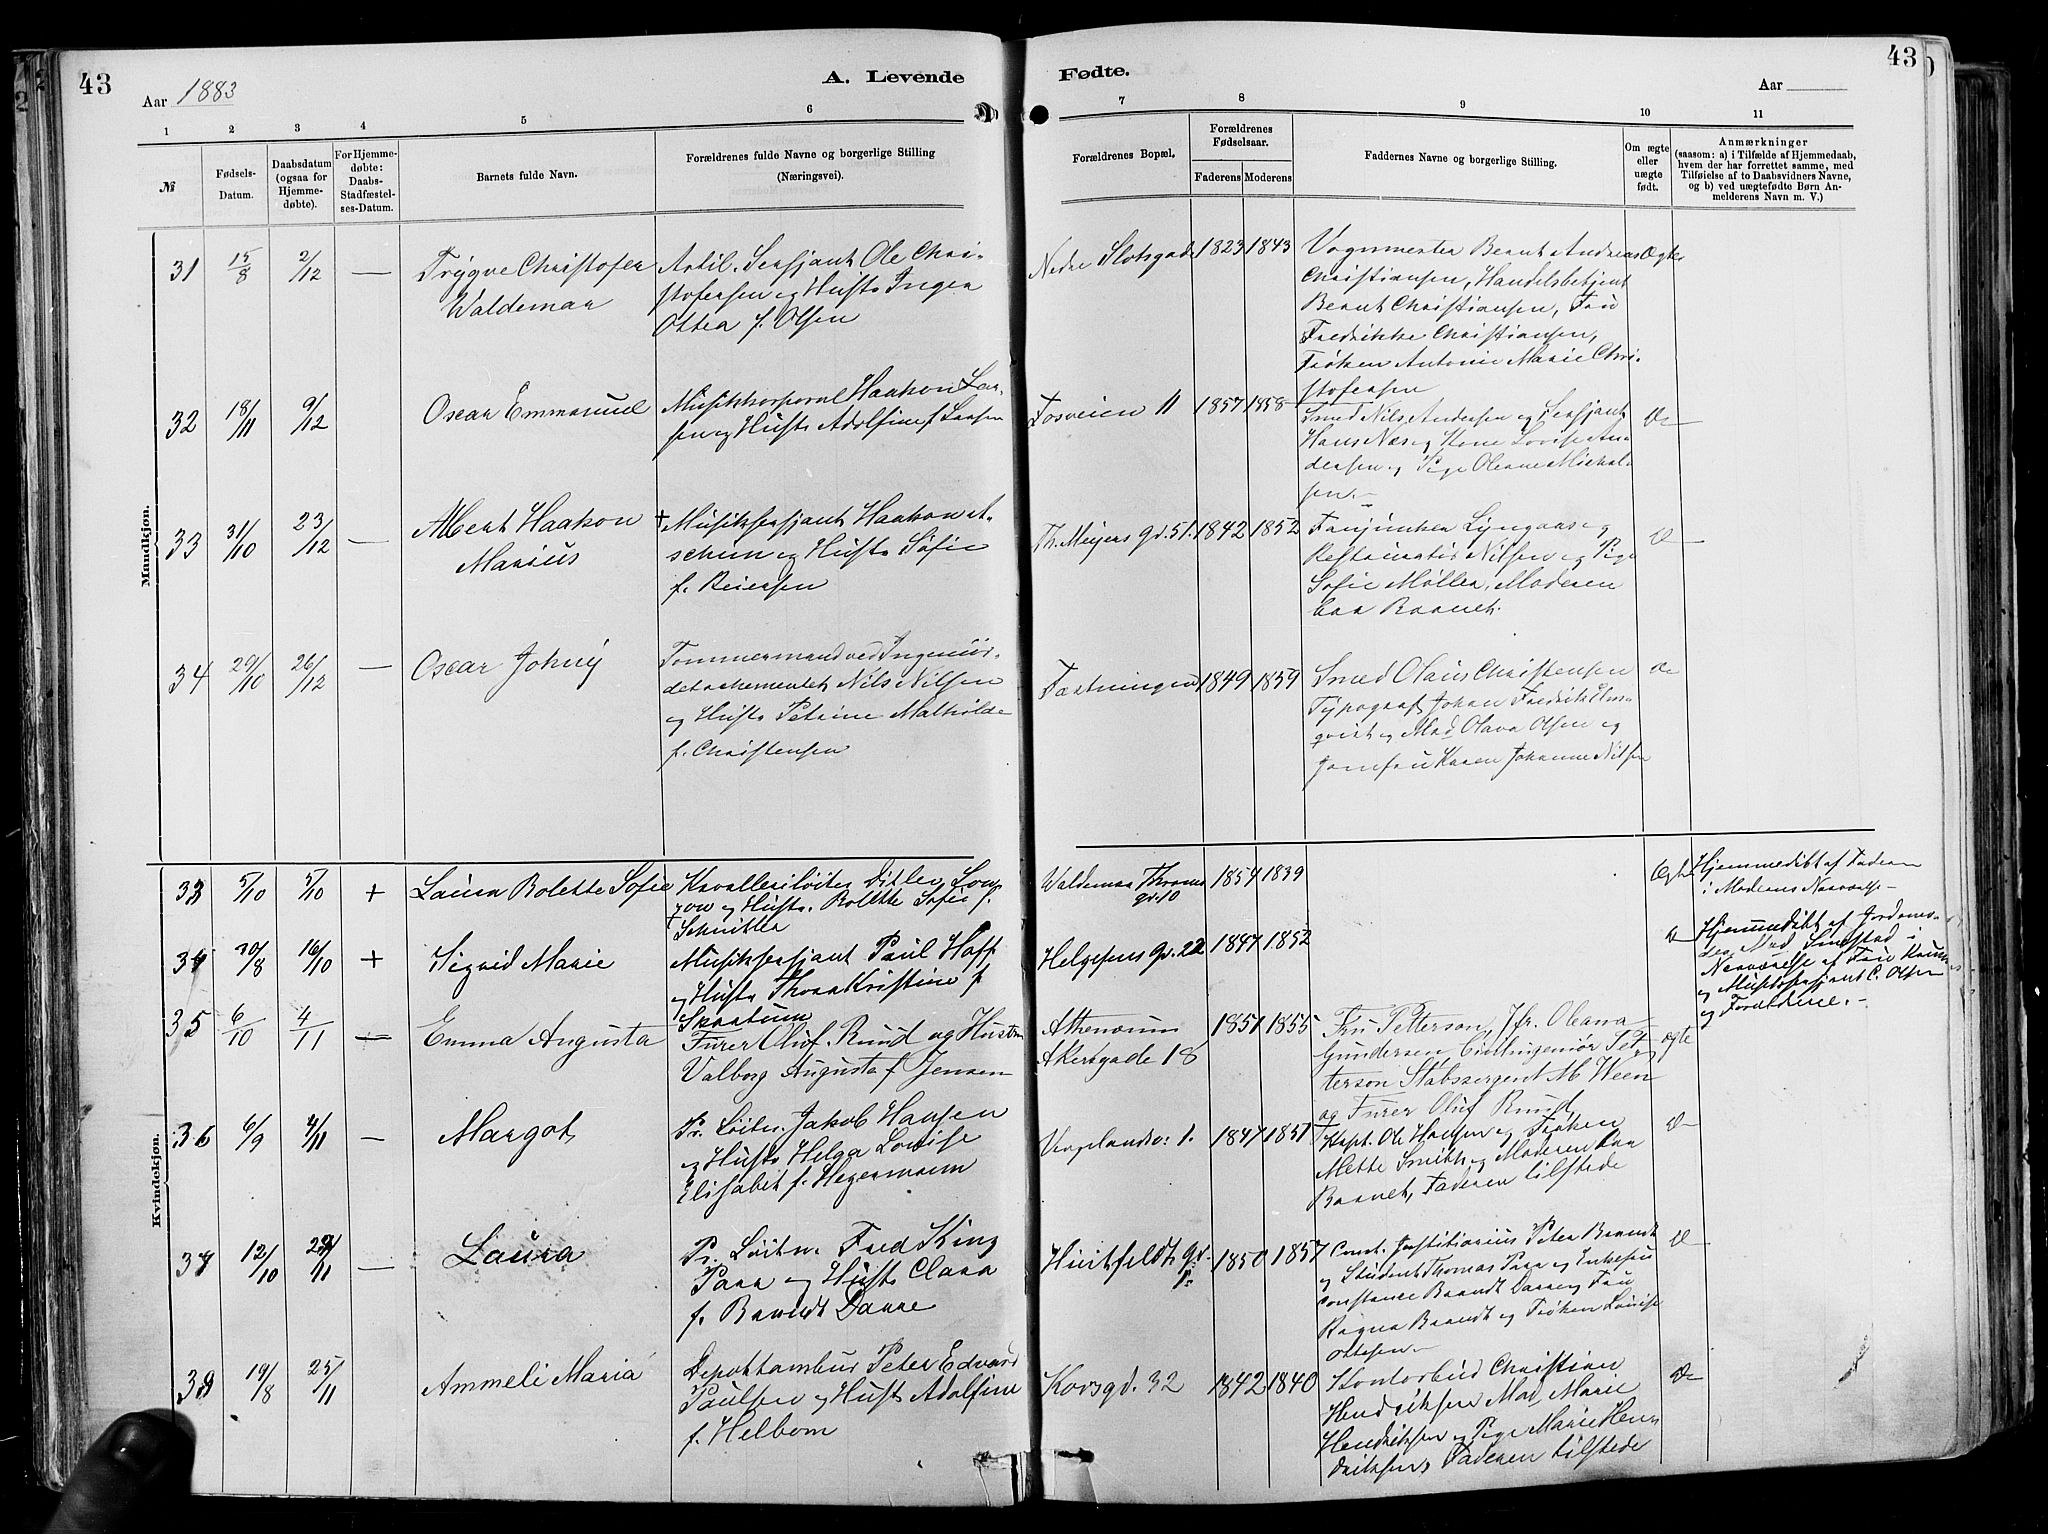 43
Aar 1883
A. Levende
1 2 3 4 5 6
№
Fødsels-
Datum.
Daabsdatum
(ogsaa for
Hjemme-
døbte).
For Hjemme-
døbte:
Daabs-
Stadfæstel-
ses-Datum.
Barnets fulde Navn.
Forældrenes fulde Navne og borgerlige Stilling
(Næringsvei).
Fødte.
43
Aar
7 8 9 10 11
Forældrenes Bopæl.
Forældrenes
Fødselsaar.
Faderens Moderens
Faddernes Navne og borgerlige Stilling.
Om ægte
eller
uægte
født.
Anmærkninger
(saasom: a) i Tilfælde af Hjemmedaab,
hvem der har forrettet samme, med
Tilføielse af to Daabsvidners Navne,
og b) ved uægtefødte Børn An-
melderens Navn m. V.)
Mandkjøn.
31 15/8 2/12 — Trygve Christofer
Waldemar
Artil. Serſjant Ole Chri-
ſtoferſen og Huſt. Inger
Ottea f. Olſen
Nedre Slotsgade 1823 1843
Vognmester Bernt Andreas
Chriſtianſen, Handelsbetjent
Bernt Chriſtianſen, Fru
Fredrikke Chriſtianſen,
Frøken Antonie Marie Chri-
ſtoferſen
Ægte
32 18/11 9/12 Oscar Emmanuel
Muſikkorporal Haakon Lar-
ſen og Huſt. Adolfine f. Larſen
Fosveien 11 1857 1858
Smed Nils Anderſen og Serſjant
Hans Næs og Kone Loviſe An-
derſen og Pige Oleane Mickel-
ſen.—
33 31/10 23/12 — Albert Haakon
Marius
+ Muſikſerſjant Haakon At-
schim og Huſt. Sofie
f. Reierſen
Th. Meyers gd. 51. 1842 1852
Fanjunker Lyngaas og
Restauratør Nilſen og Pige
Sofie Møller, Moderen
bar Barnet.
34 29/10 26/12 — Oscar Johnÿ
Tømmermand ved Ingeniør-
detachementet Nils Nilſen
og Huſt. Petrine Mathilde
f. Chriſtenſen
Fæstningen 1849 1859
Smed Olaus Chriſtenſen
Typograf Johan Fredrik Alm-
qviſt og Mad Olava Olſen og
Jomfru Karen Johanne Nilſen
Kvindekjøn.
33 5/10 5/10 + Laura Bolette Sofie
Kavalleriløitn. Ditlev Lon-
zow og Huſt. Bolette Sofie f.
Schnitler
Waldemar Thranes
gd. 10 1854 1839
Ægte
Hjemmedøbt af Faderen
i Moderens Nærværelse—
34 20/8 16/10 + Sigrid Marie
Muſikſerſjant Paul Hoff
og Huſt. Thora Kristine f
Skartum
Helgesens Gd. 22 1847 1852
Hjemmedøbt af Jordemo-
der Mad Simstad i
Nærværelse af Fru
og Muſikſerſjant C. Olſen
og Forældrene.—
35 6/10 4/11 — Emma Augusta
Furer Oluf Ruud og Hustru
Valborg Augusta f Jensen
Athenæum
Akersgade 18 1851 1855
Fru Petterson, Jfr. Oleana
Gundersen Civilingeniør Pet-
terson Stabssergent M. Ween
og Furer Oluf Ruud
ægte
36 6/9 4/11 — Margot
Pr. Løitn. Jakob Hanſen
og Huſt. Helga Loviſe
Eliſabet f. Hegermann
Vergelandsv: 1. 1847 1851
Kapt. Ole Hanſen og Frøken
Mette Smith og Moderen bar
Barnet, Faderen tilſtede
37 12/10 /11 — Laura
Pr. Løitn. Fred King
Parr og Huſt. Clara
f. Brandt Danne
Huitfeldts gd. 1850 1857
Conſt. Juſtitiarius Peter Brandt
og Student Thomas Parr og Enkefru
Conſtance Brandt Danne og Fru
Ragna Brandt og Frøken Louiſe
Otteſen—
38 19/8 25/11 Ammeli Maria
Depottambur Peter Edvard
Paulſen og Huſt. Adolfine
f. Helbom
Korsgd. 32 1842 1840
Kontorbud Chriſtian
Hendrikſen Mad. Marie
Hendrikſen og Pige Marie Hen-
drikſen, Faderen tilſtede